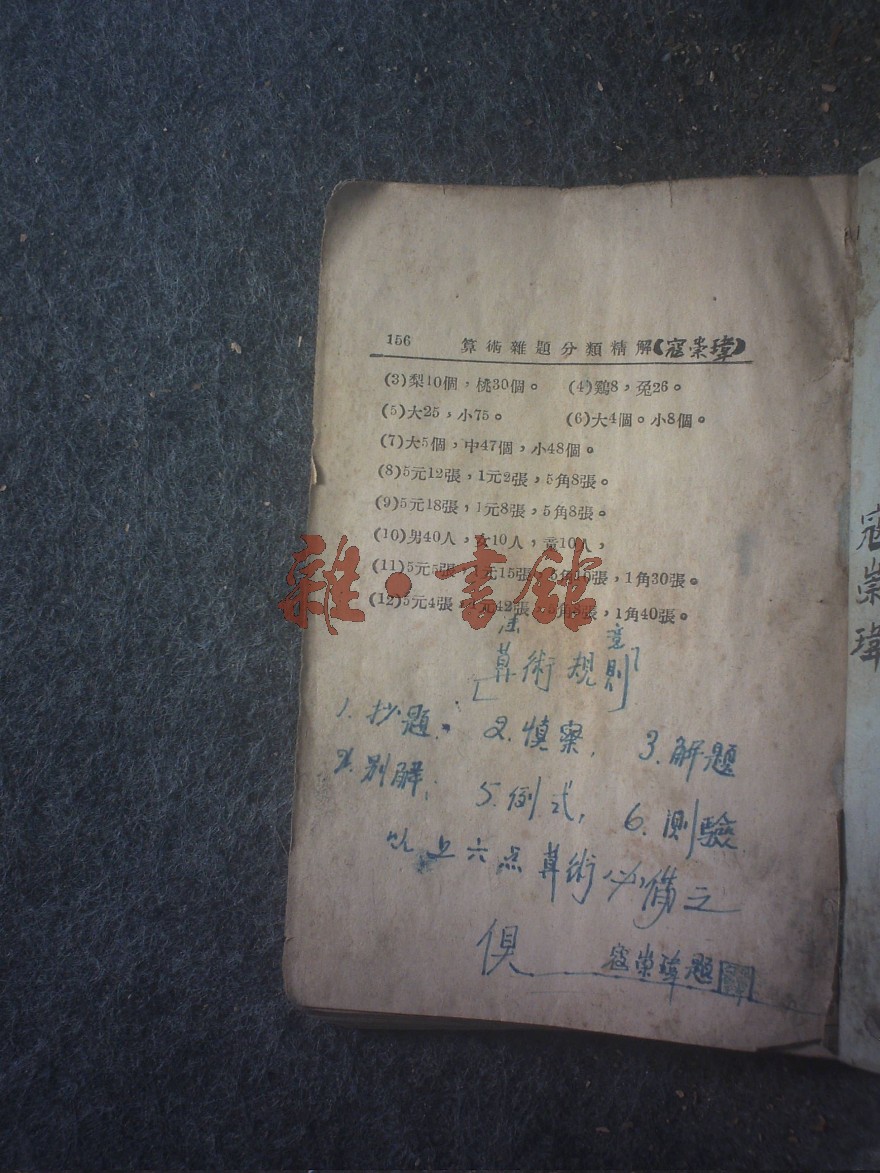 156 算術雜題分類精解【寇崇瑋】
(3)梨10個，桃30個。 (4)鷄8，兎26。
(5)大25，小75。 (6)大4個。小8個。
(7)大5個，中47個，小48個。
(8)5元12張，1元2張，5角8張。
(9)5元18張，1元8張，5角8張。
(10)男40人，女10人，童10人，
(11)5元5張，1元15張，5角10張，1角30張。
(12)5元4張，1元42張，1角40張。
雜·書館
法 意
「算術規則」
1.抄題. 2.慎察, 3.解題
4.別解, 5.例式, 6.測驗.
以上六点算術必備之
俱 寇崇瑋題
寇崇瑋